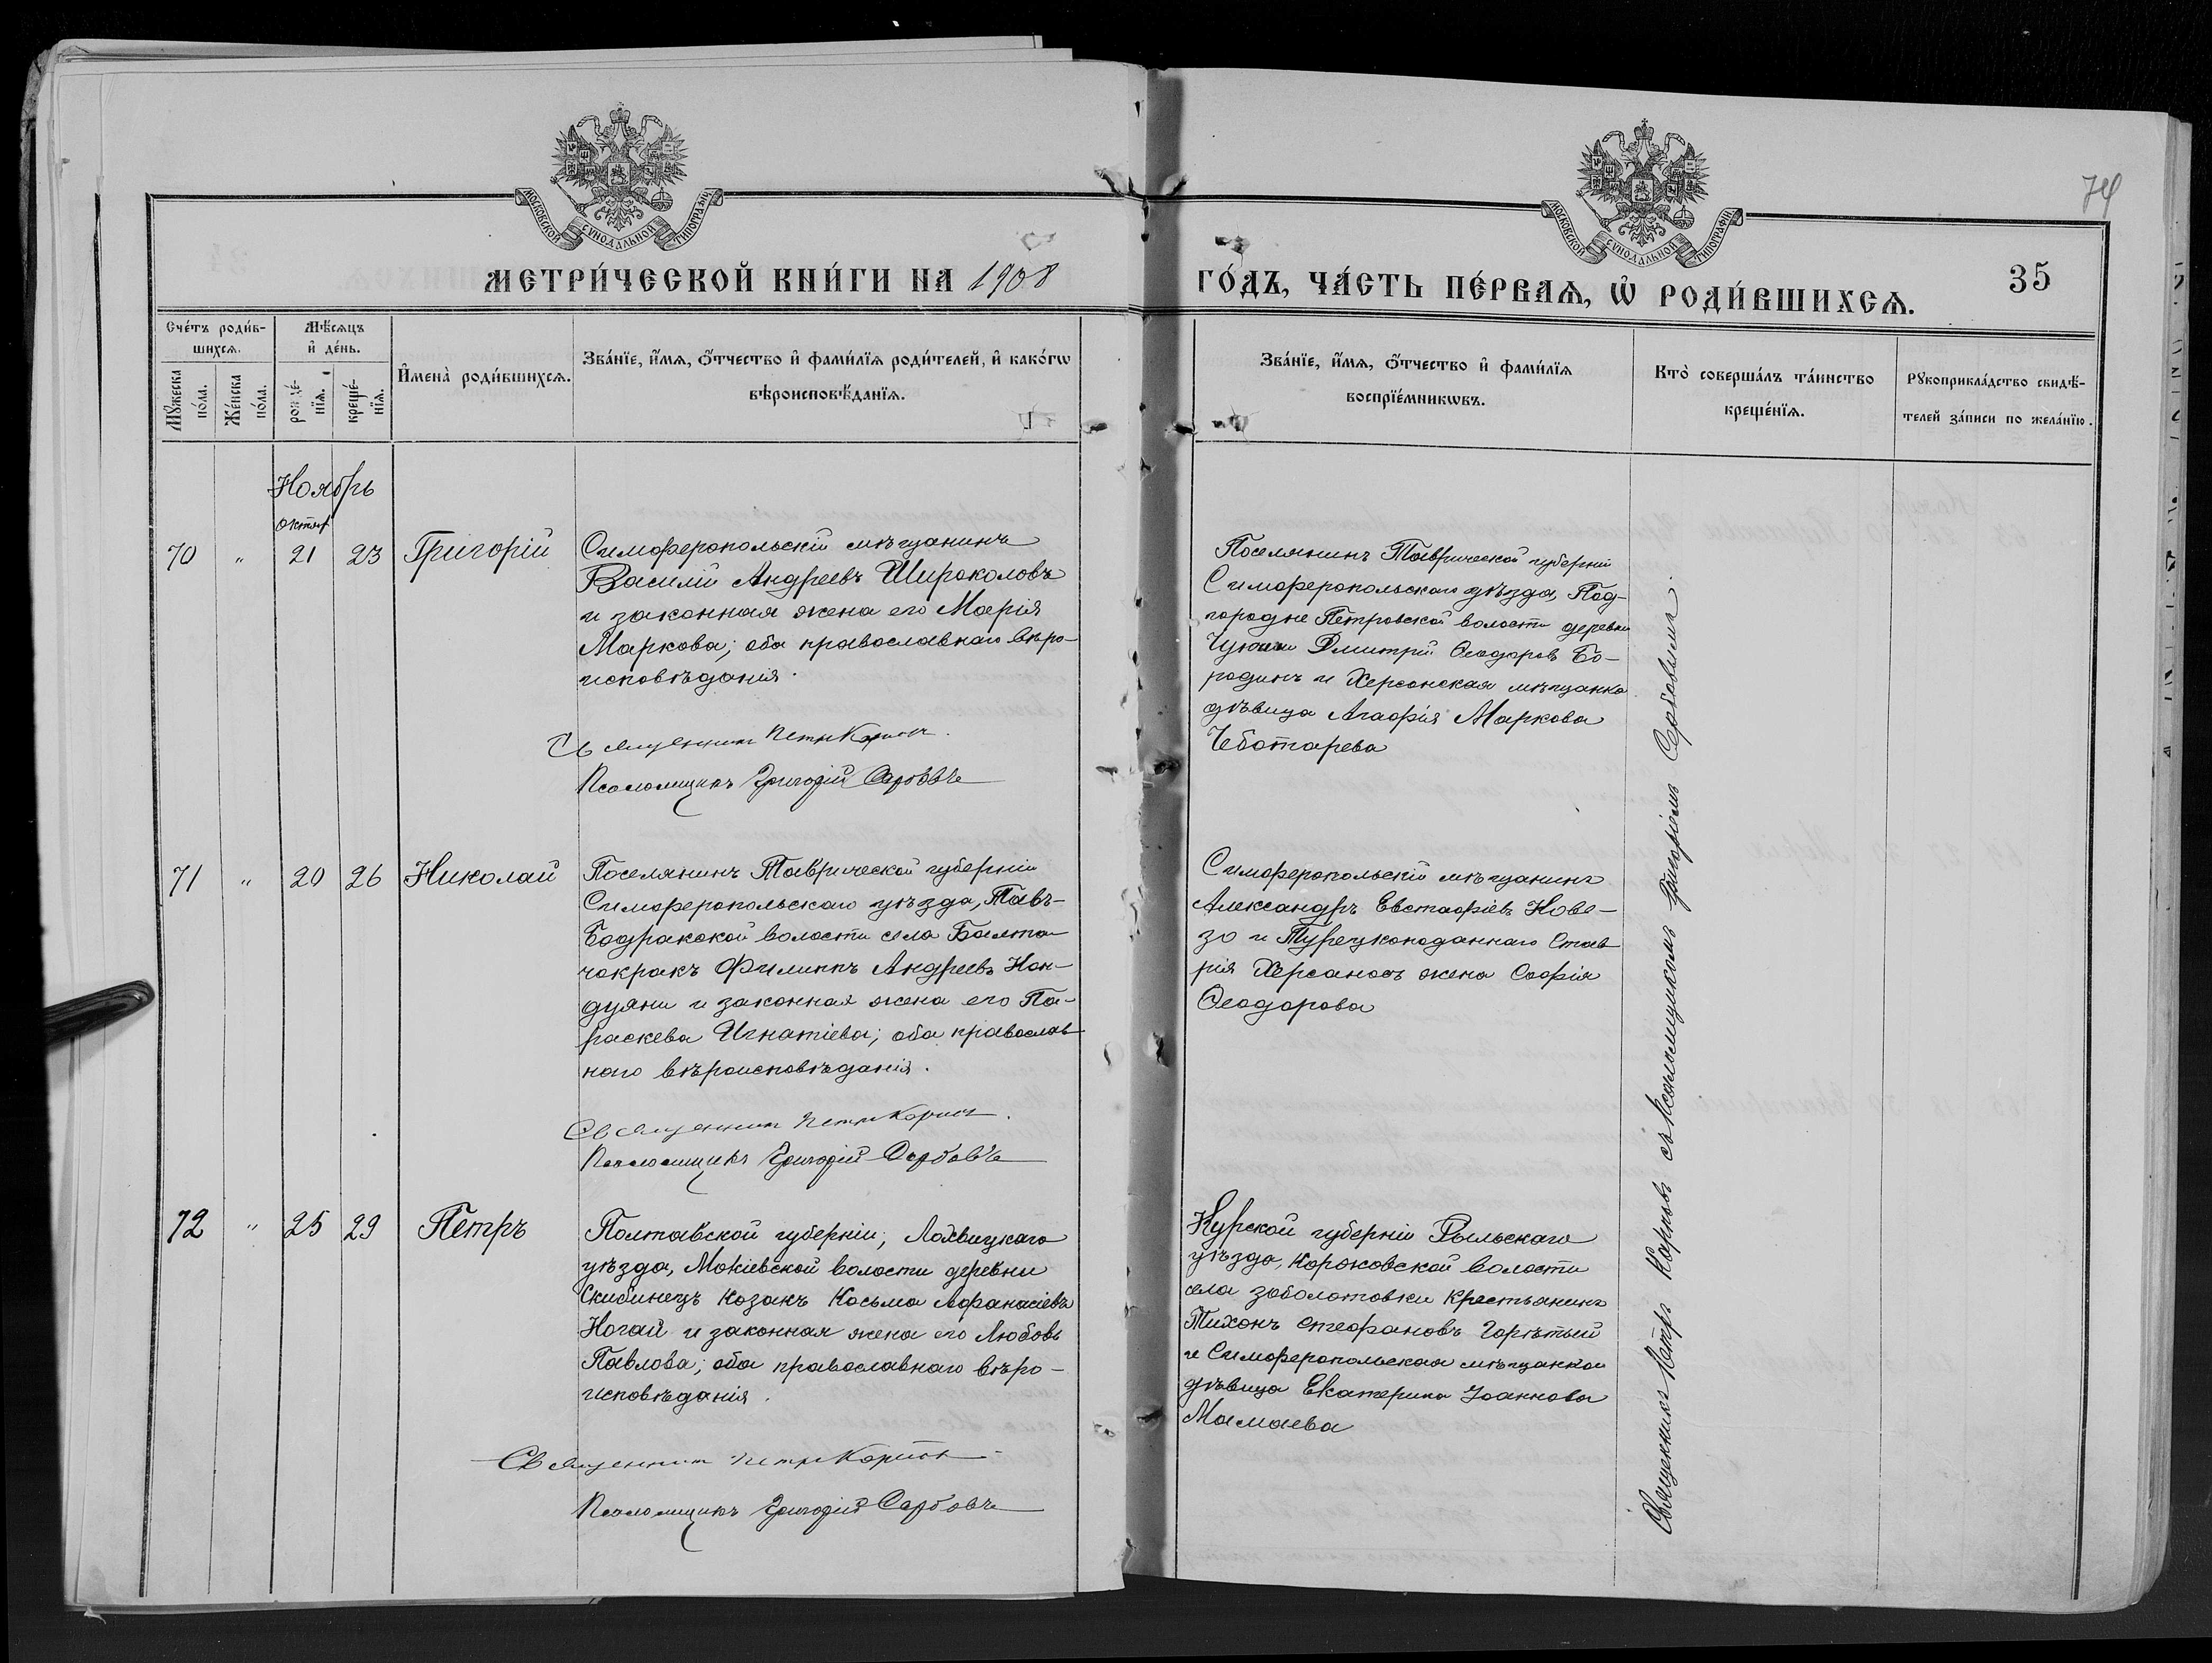 74
МОСКОВСКОЙ СѴНОДАЛЬНОЙ ТИПОГРАФІИ
МОСКОВСКОЙ СѴНОДАЛЬНОЙ ТИПОГРАФІИ
МЕТРИ́ЧЕСКОЙ КНИ́ГИ НА 1908
ГО́ДЪ, ЧА́СТЬ ПЕ́РВАѦ, Ѡ҆ РОДИ́ВШИХСѦ.
35
Сче́тъ роди́в-
шихсѧ.
Мѣ́сѧцъ
и҆ де́нь.
Мꙋ́жеска
по́ла.
Же́нска
по́ла.
рожде́-
нїѧ.
креще́-
нїѧ.
И҆мена̀ роди́вшихсѧ.
Зва́нїе, и҆́мѧ, ѻ҆́тчество и҆ фами́лїѧ роди́телей, и҆ како́гѡ
вѣроисповѣ́данїѧ.
Зва́нїе, и҆́мѧ, ѻ҆́тчество и҆ фами́лїѧ
воспрїе́мникѡвъ.
Кто̀ соверша́лъ та́инство
креще́нїѧ.
Рꙋкоприкла́дство свидѣ́-
телей за́писи по жела́нїю.
Ноябрь
октяб
70 " 21 23 Григорій
Симферопольскій мѣщанинъ
Василій Андреевъ Широколовъ
и законная жена его Марія
Маркова; оба православнаго вѣро-
исповѣданія.
Священникъ Петръ Корпов
Псаломщикъ Григорій Сербовъ
Поселянинъ Таврической губерніи
Симферопольскаго уѣзда, Под-
городне Петровской волости деревни
Дмитрій Ѳеодоровъ Бо-
родинъ и Херсонская мѣщанка
дѣвица Агафія Маркова
Чеботарева
71 " 20 26 Николай
Поселянинъ Таврической губерніи
Симферопольскаго уѣзда, Тавъ-
Бодракской волости села Балта-
чокракъ Филиппъ Андреевъ Кон-
дуяни и законная жена его Па-
раскева Игнатіева; оба православ-
наго вѣроисповѣданія.
Священникъ Петръ Корпов
Псаломщикъ Григорій Сербовъ
Симферопольскій мѣщанинъ
Александръ Евстафіевъ Кове-
зо и Турецкоподаннаго Став
рія Херсаносъ жена Софія
Ѳеодорова
72 " 25 29 Петръ
Полтавской губерніи, Лохвицкаго
уѣзда, Мокіевской волости деревни
Скибинецъ козакъ Косьма Афанасіевъ
Ногай и законная жена его Любовь
Павлова; оба православнаго вѣро-
исповѣданія.
Священникъ Петръ Корпов
Псаломщикъ Григорій Сербовъ
Курской губерніи Рыльскаго
уѣзда, Короковской волости
села Заболотовки крестьянинъ
Тихонъ Стефановъ
и Симферопольская мѣщанка
дѣвица Екатерина Іоаннова
Мамаева
Священникъ Петръ Корповъ съ псаломщикомъ Григоріемъ Сербовымъ.